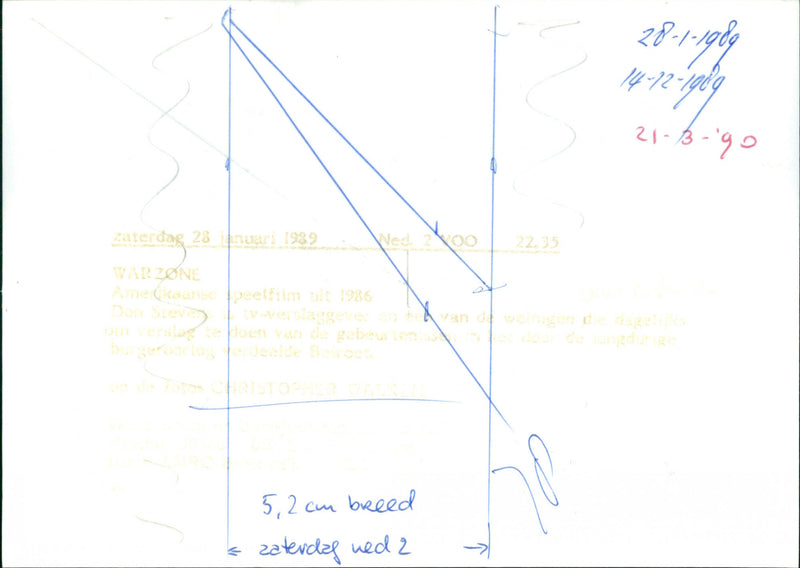 28-1-1989
14-12-1989
21-3-'90
zaterdag 28 januari 1989 Ned. 2 VOO 22.35
WARZONE
Amerikaanse speelfilm uit 1986
Don Stevens is tv-verslaggever en een van de weinigen die dagelijks
om verslag te doen van de gebeurtenissen in het door de langdurige
burgeroorlog verdeelde Beiroet.
op de foto: CHRISTOPHER WALKEN
5,2 cm breed
zaterdag ned 2